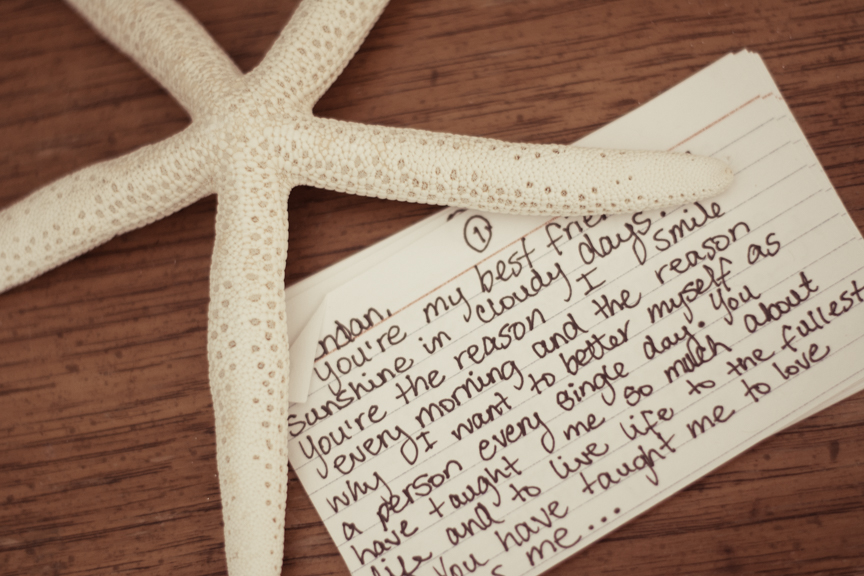 1
You're my best
sunshine in cloudy days.
You're the reason I smile
every morning and the reason
why I want to better myself as
a person every single day. You
have taught me so much about
life and to live life to the fullest
You have taught me to love
me...